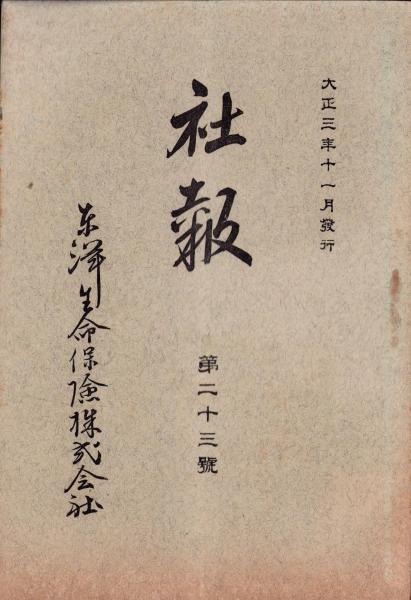 大正三年十一月發行
社報
第二十三號
東洋生命保險株式会社